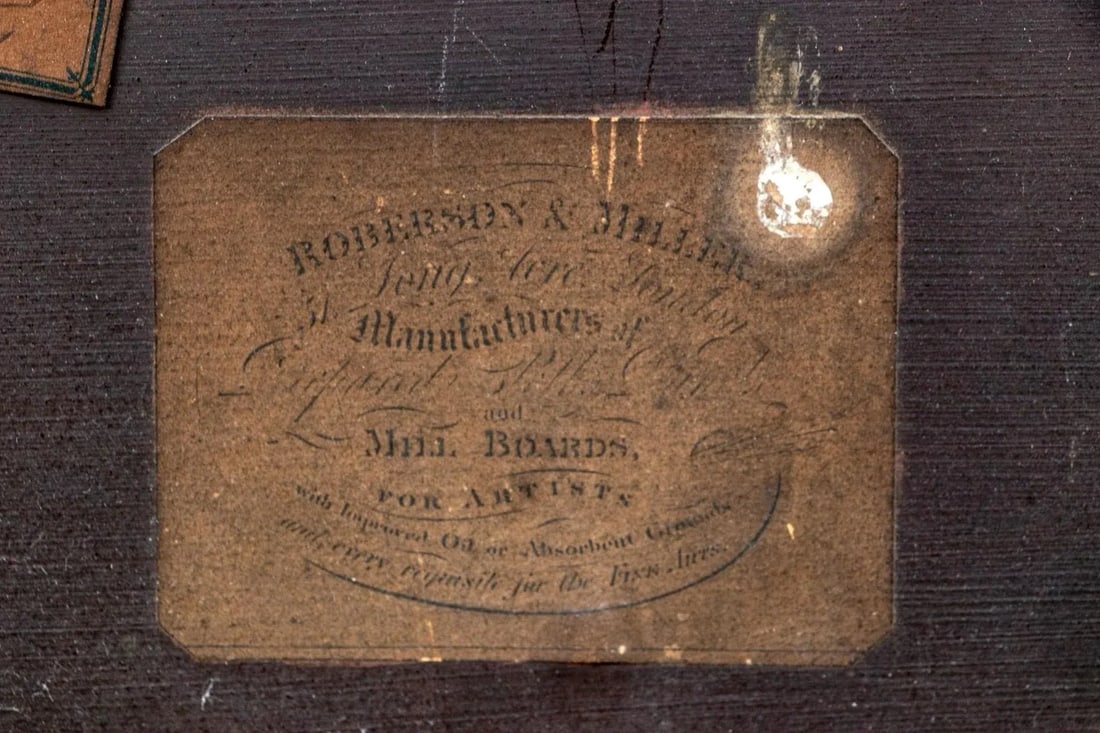 ROBERSON & MILLER
51 Long Acre London
Manufacturers of
Prepared
and
MILL BOARDS,
FOR ARTISTS
with Improved Oil or Absorbent Grounds
and every requisite for the FINE ARTS.